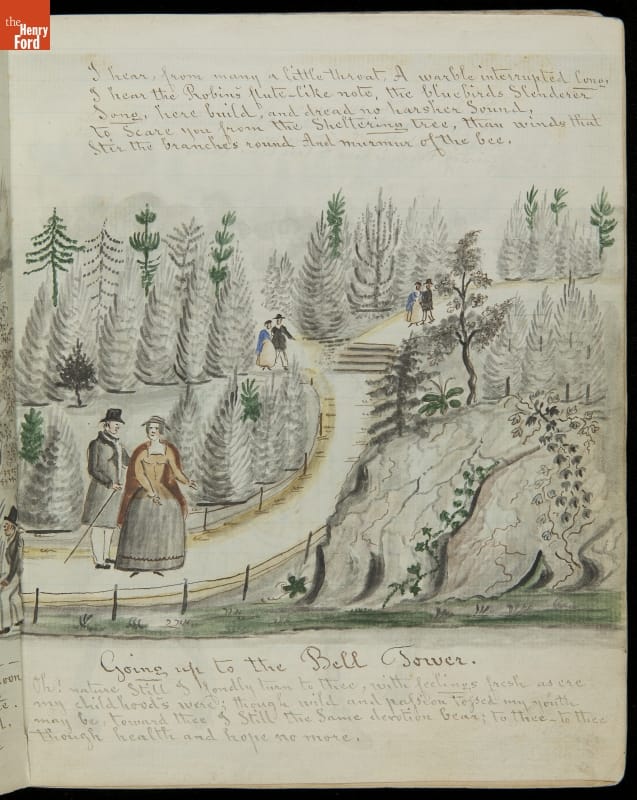 the
Henry
Ford
I hear, from many a little throat, A warble interrupted long,
I hear the Robins flute-like note, the bluebirds Slenderer
Song, here build, and dread no harsher Sound,
to Scare you from the Sheltering tree, than winds that
Stir the branches round And murmur of the bee.
Going up to the Bell Tower.
Oh! nature Still I fondly turn to thee, with feelings fresh as ere
my childhoods were; though wild and passion tossed my youth
may be, toward thee I Still the Same devotion bear; to thee-to thee
though health and hope no more.